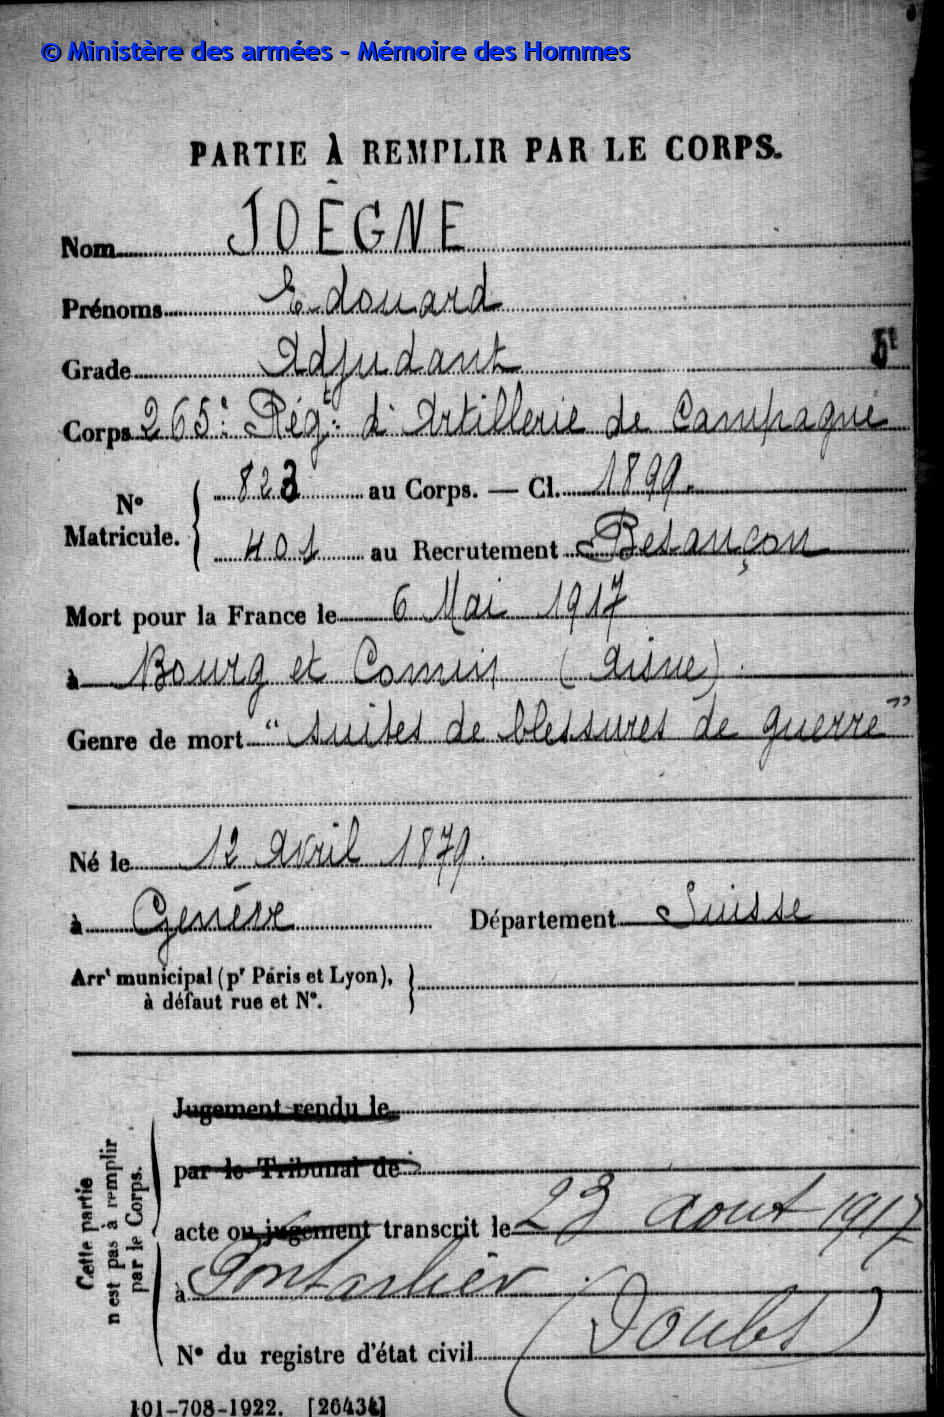 © Ministère des armées - Mémoire des Hommes
PARTIE À REMPLIR PAR LE CORPS.
Nom JOËGNE
Prénoms Edouard
Grade Adjudant
Corps 265e Régt d'Artillerie de Campagne
N° Matricule. 823 au Corps. — Cl. 1899.
401 au Recrutement Besançon
Mort pour la France le 6 Mai 1917
à Bourg et Comin (Aisne).
Genre de mort "suites de blessures de guerre"
Né le 12 Avril 1879.
à Genève Département Suisse
Arrt municipal (pr Paris et Lyon),
à défaut rue et N°.
Cette partie n'est pas à remplir par le Corps.
Jugement rendu le
par le Tribunal de
acte ou jugement transcrit le 23 aout 1917
à Pontarlier (Doubs)
N° du registre d'état civil
101-708-1922. [26434]